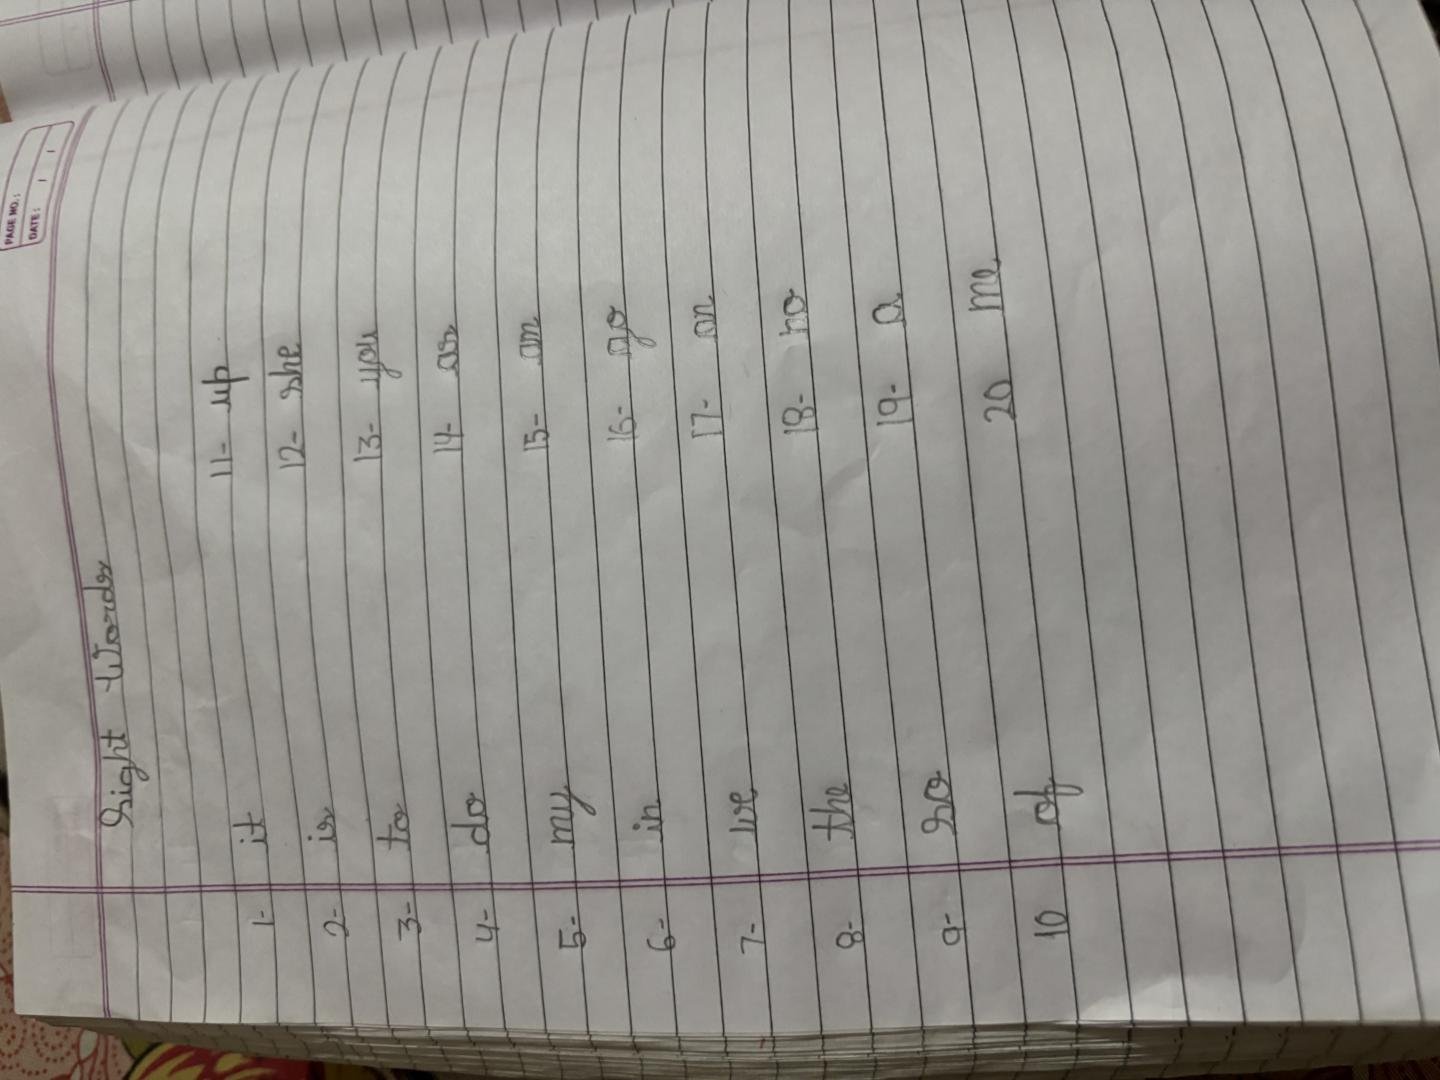 PAGE NO.:
DATE: / /
Sight Words
1- it
2- is
3- to
4- do
5- my
6- in
7- we
8- the
9- so
10 of
11- up
12- she
13- you
14- as
15- am
16- go
17- on
18- no
19- a
20 me